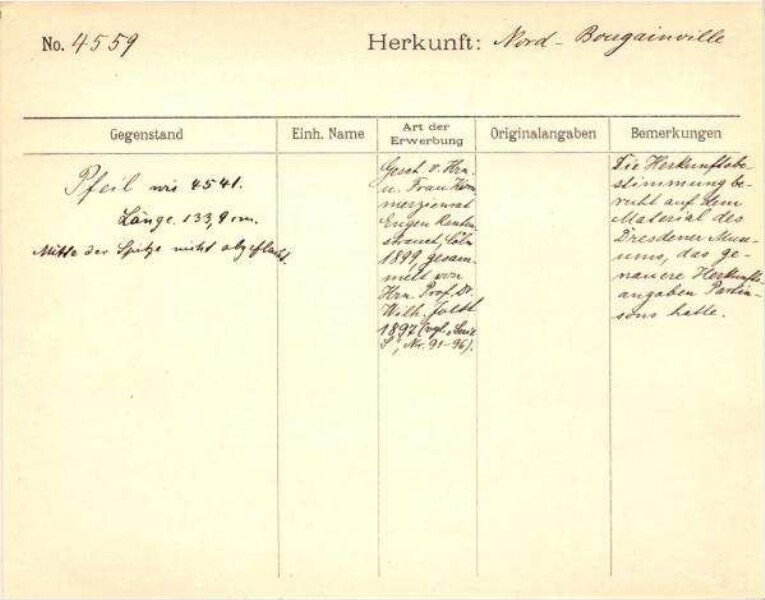 No. 4559
Herkunft: Nord-Bougainville
Gegenstand
Einh. Name
Art der
Erwerbung
Originalangaben
Bemerkungen
Pfeil wie 4541.
Länge. 133,9 cm.
Mitte der Spitze nicht abgeflacht.
Gesch. v. Hrn.
u. Frau Kom-
merzienrat
Eugen Rauten-
strauch, Cöln
1899, gesam-
melt von
Hrn. Prof. Dr.
Wilh. Joest
1897 (vgl. Serie
S", Nr. 91-96).
Die Herkunftsbe-
stimmung be-
ruht auf dem
Material des
Dresdener Muse-
ums, das ge-
nauere Herkunfts-
angaben Parkin-
sons hatte.